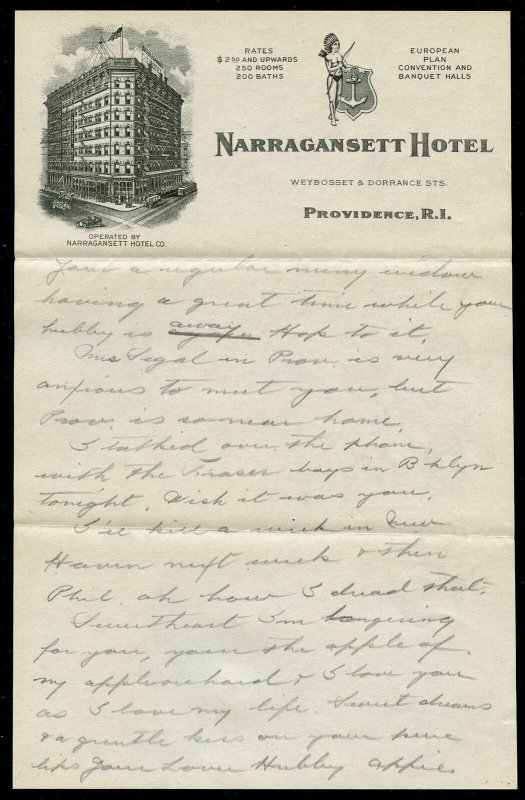 RATES
$2.50 AND UPWARDS
250 ROOMS
200 BATHS
EUROPEAN
PLAN
CONVENTION AND
BANQUET HALLS
NARRAGANSETT HOTEL
WEYBOSSET & DORRANCE STS.
PROVIDENCE, R.I.
OPERATED BY
NARRAGANSETT HOTEL CO.
Your a regular merry widow
having a great time while your
hubby is away Hop to it.
Mrs Segal in Prov. is very
anxious to meet you, but
Prov. is so near home.
I talked over the phone,
with the Fraser boys in B'klyn
tonight. Wish it was you.
I'll kill a week in New
Haven next week & then
Phil. oh how I dread that.
Sweetheart I'm hongering
for you, your the apple of
my & I love you
as I love my life. Sweet dreams
& a gentle kiss on your
lips Your Lovin Hubby